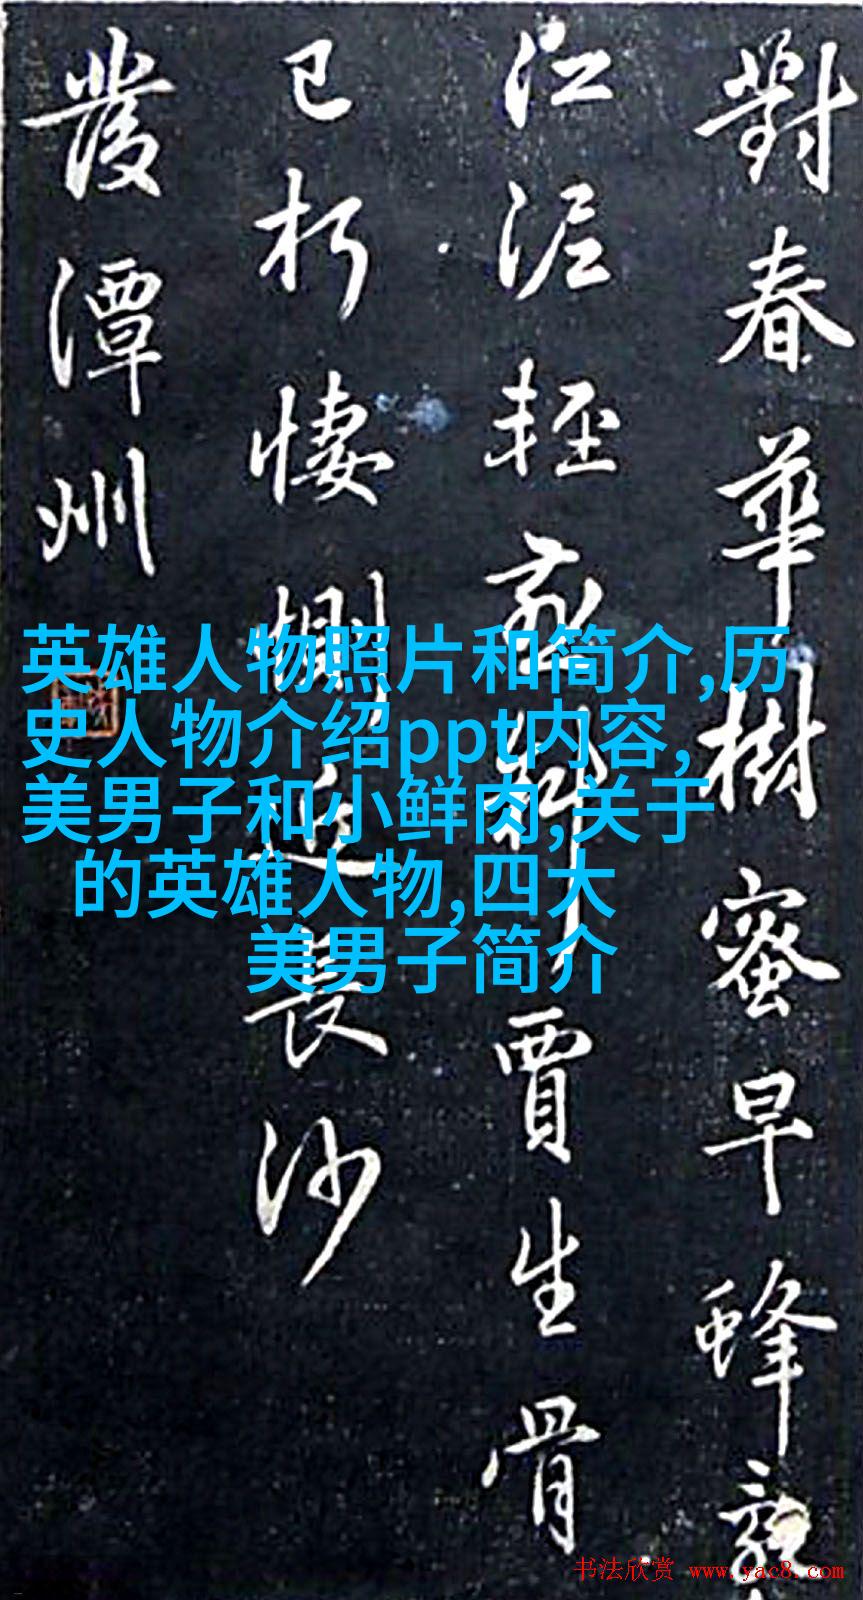 對春華樹蜜早蜂
江泥輕
賈生骨
已朽悽惻近長沙
發潭州
英雄人物照片和简介,历
史人物介绍ppt内容,
美男子和小鲜肉,关于
的英雄人物,四大
美男子简介
书法欣赏 www.yac8.com